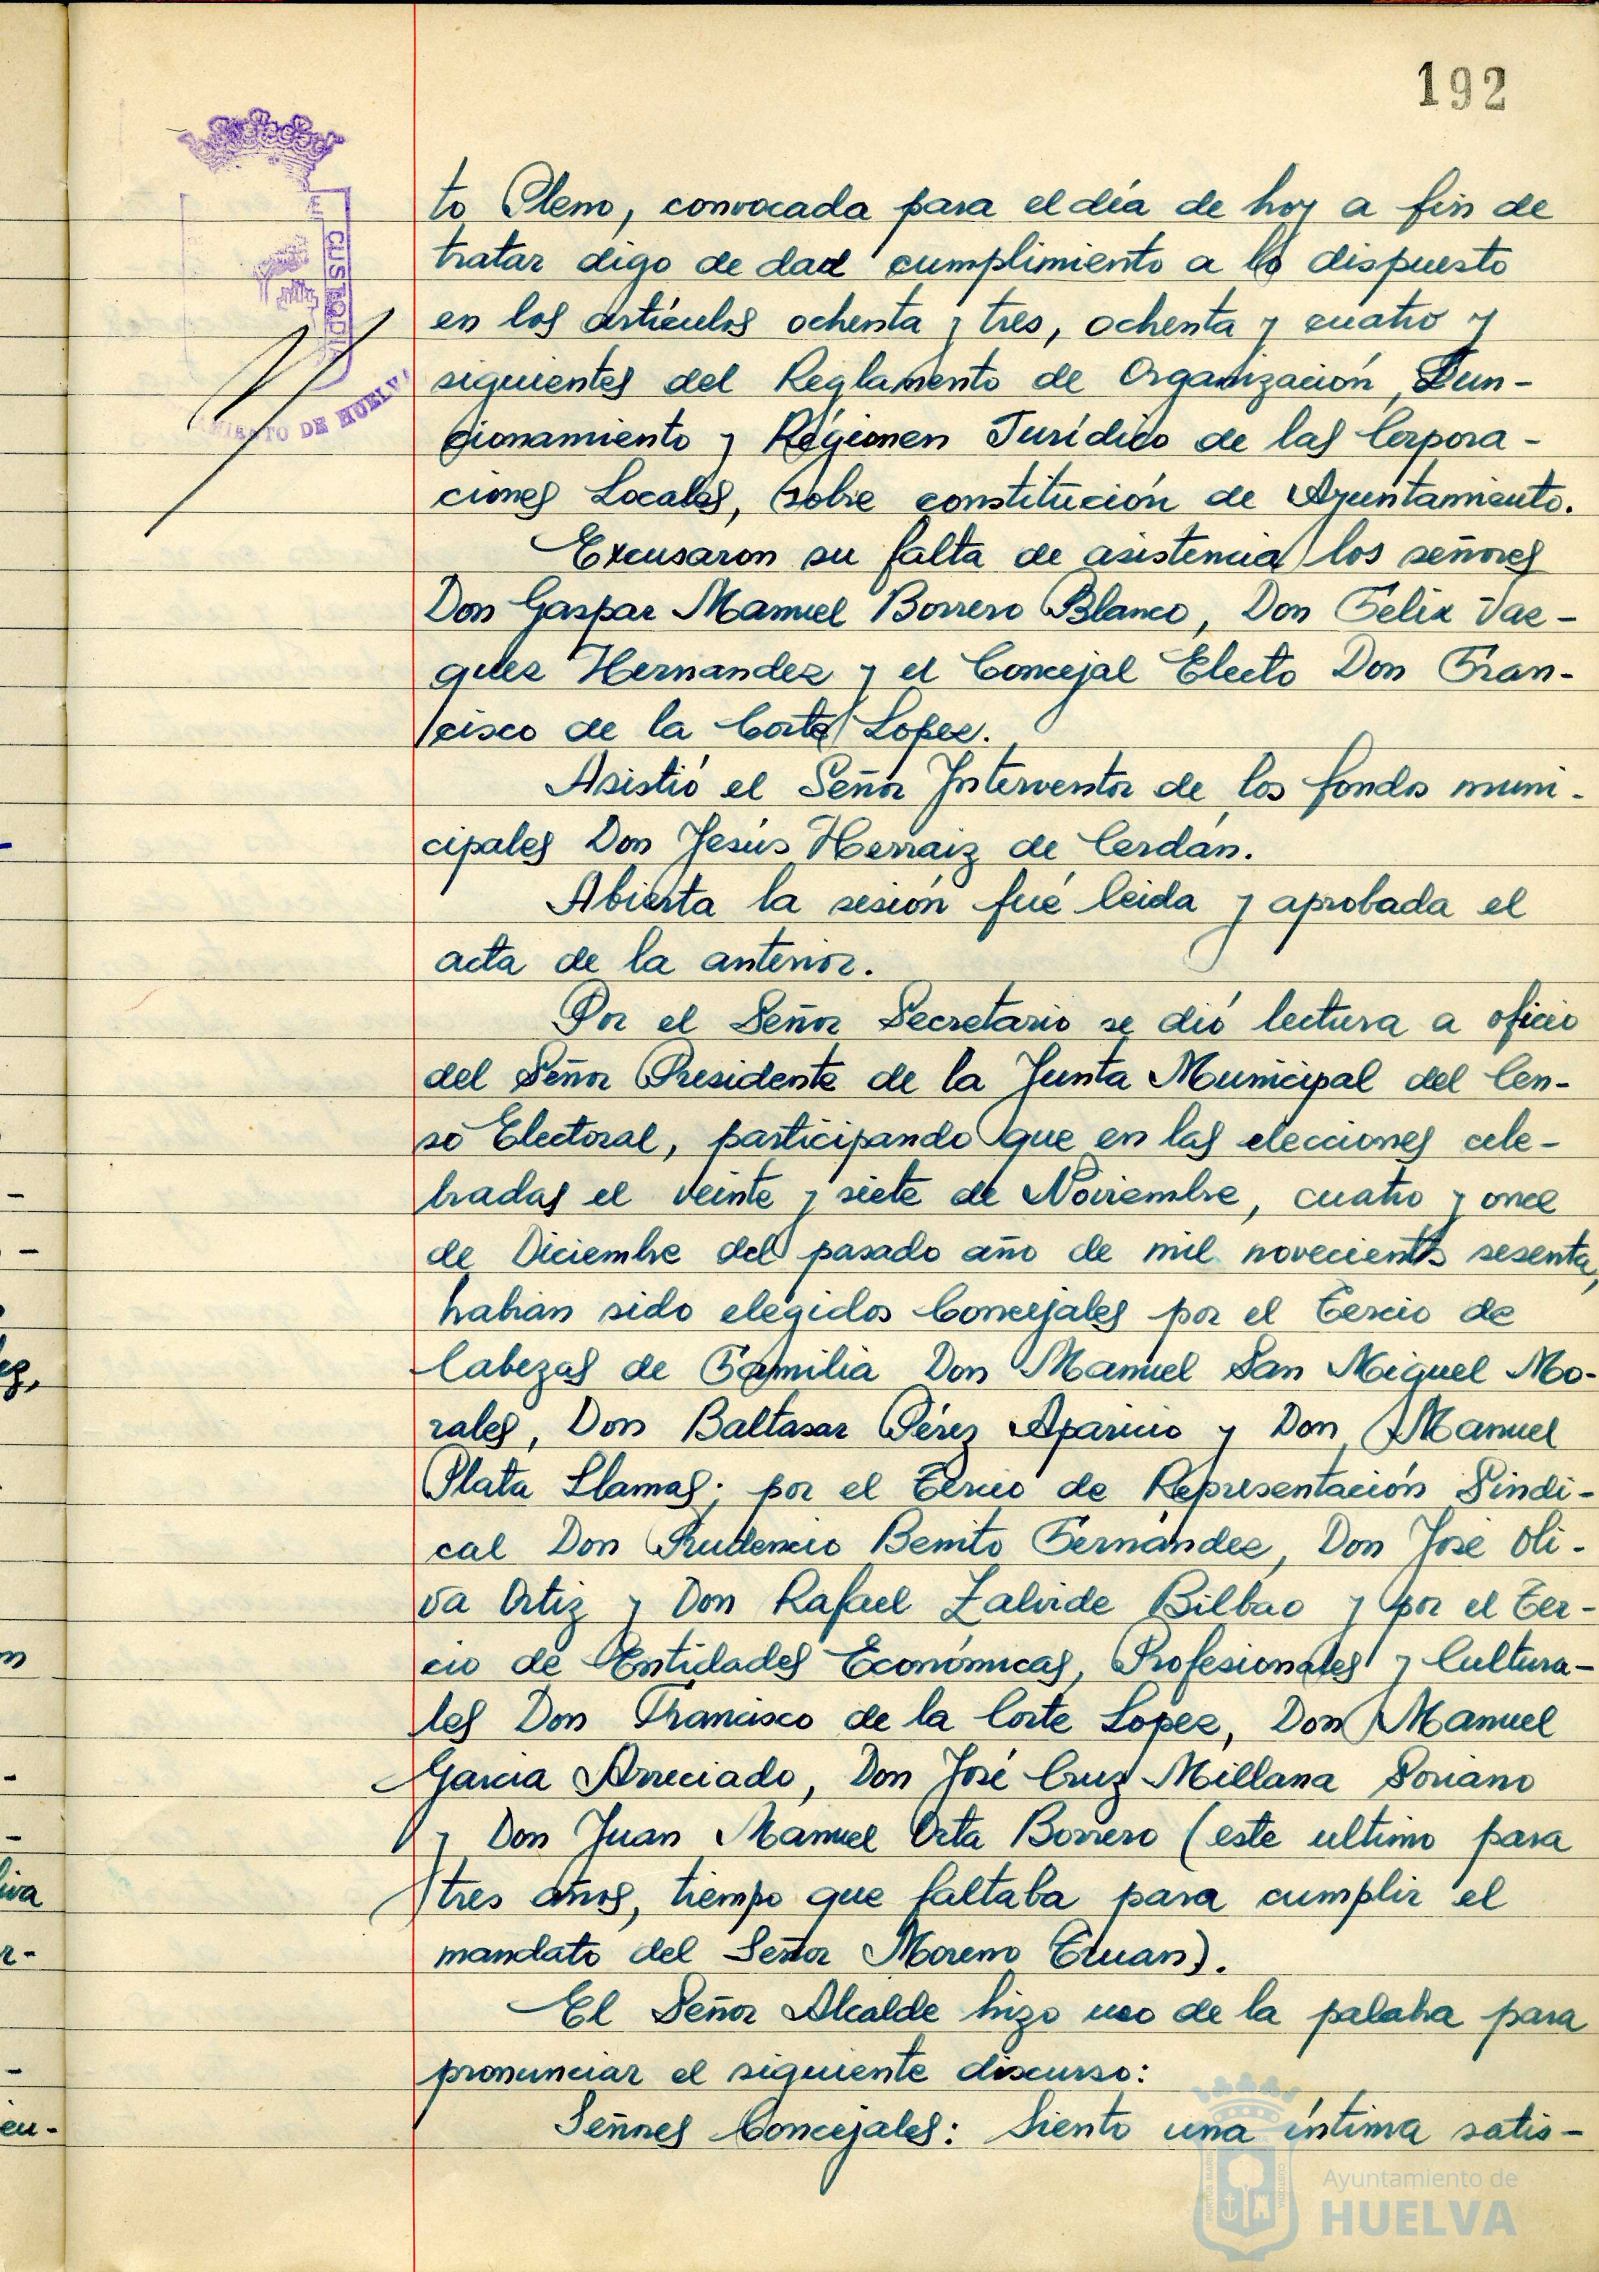 192
CUSTODIA
AMIENTO DE HUELVA
to Pleno, convocada para el día de hoy a fin de
tratar digo de dad cumplimiento a lo dispuesto
en los artículos ochenta y tres, ochenta y cuatro y
siguientes del Reglamento de Organización, Fun-
cionamiento y Régimen Jurídico de las Corpora-
ciones Locales, sobre constitución de Ayuntamiento.
Excusaron su falta de asistencia los señores
Don Gaspar Manuel Borrero Blanco, Don Felix Vaz-
quez Hernandez y el Concejal Electo Don Fran-
cisco de la Corte Lopez.
Asistió el Señor Interventor de los fondos muni-
cipales Don Jesús Herraiz de Cerdán.
Abierta la sesión fué leida y aprobada el
acta de la anterior.
Por el Señor Secretario se dió lectura a oficio
del Señor Presidente de la Junta Municipal del Cen-
so Electoral, participando que en las elecciones cele-
bradas el veinte y siete de Noviembre, cuatro y once
de Diciembre del pasado año de mil novecientos sesenta,
habían sido elegidos Concejales por el Tercio de
Cabezas de Familia Don Manuel San Miguel Mo-
rales, Don Baltasar Pérez Aparicio y Don Manuel
Plata Llamas; por el Tercio de Representación Sindi-
cal Don Prudencio Benito Fernández, Don José Oli-
va Ortiz y Don Rafael Zalvide Bilbao y por el Ter-
cio de Entidades Económicas, Profesionales y Cultura-
les Don Francisco de la Corte Lopez, Don Manuel
Garcia Arreciado, Don José Cruz Millana Soriano
y Don Juan Manuel Orta Borrero (este ultimo para
tres años, tiempo que faltaba para cumplir el
mandato del Señor Moreno Truan).
El Señor Alcalde hizo uso de la palabra para
pronunciar el siguiente discurso:
Señores Concejales: Siento una íntima satis-
Ayuntamiento de
HUELVA